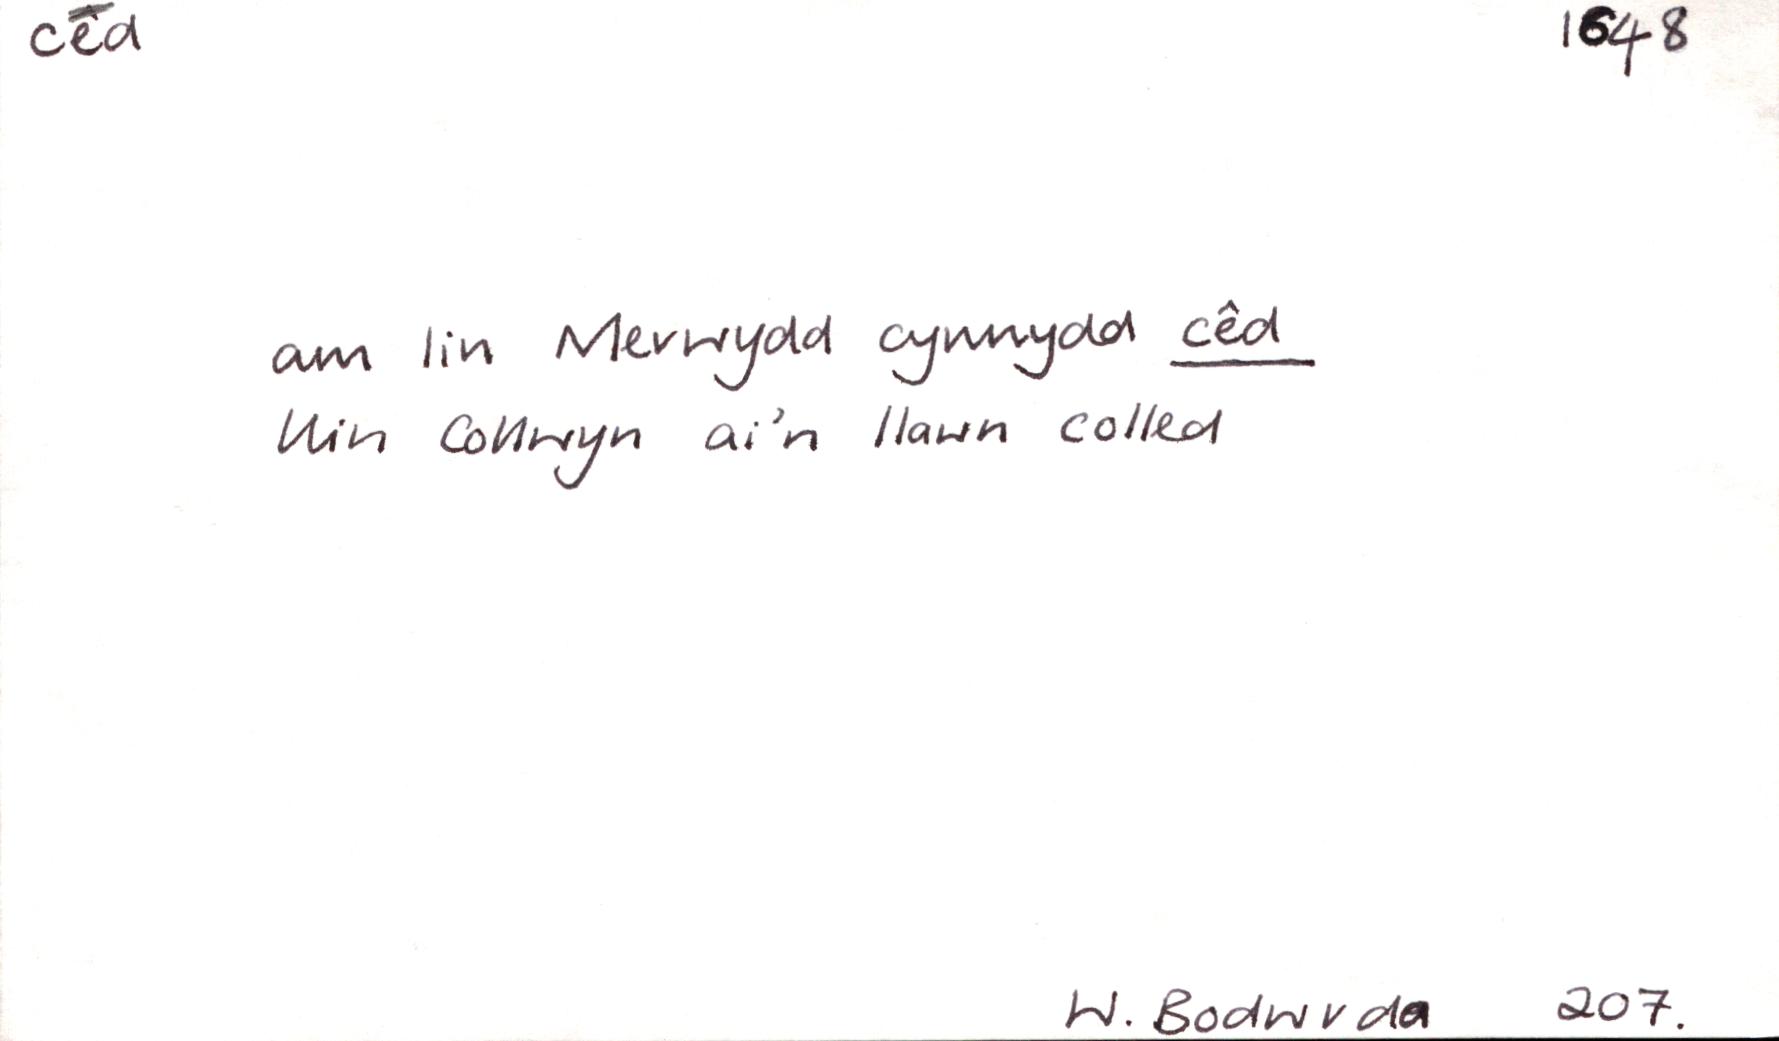 cêd 1648
am lin Merwydd cynnydd cêd
llin Collwyn ai'n llawn colled
W. Bodwrda 207.